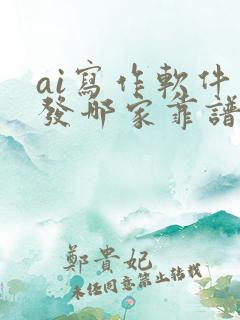 ai寫作軟件
發哪家靠譜
鄭貴妃
未经同意禁止转载